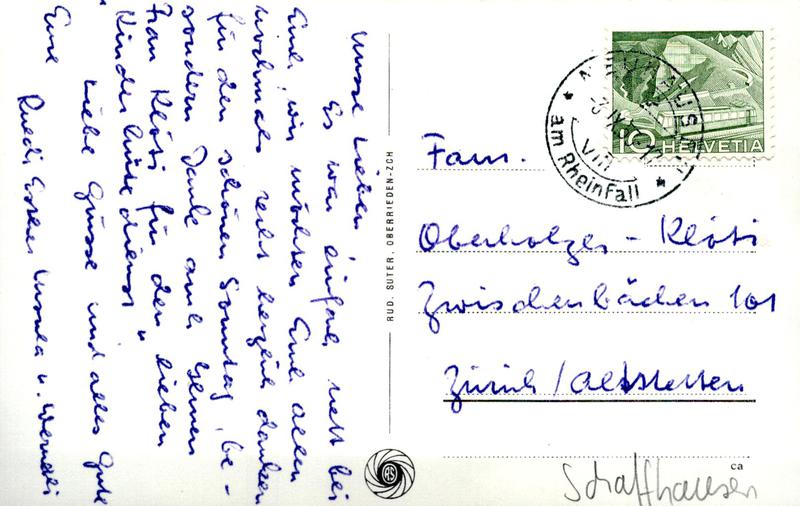 Unsere Lieben
Es war einfach nett bei
Euch, wir möchten Euch allen
nochmals recht herzlich danken
für den schönen Sonntag, be-
sondern Dank auch
Frau Klöti für den lieben
"Kinderhütedienst"
Liebe Grüsse und alles Gute
Eure Ruedi Ursula u.
RUD. SUTER, OBERRIEDEN-ZCH
NEUHAUSEN
am Rheinfall
VIII
10 HELVETIA
Fam.
Oberholzer-Klöti
Zwischenbächen 101
Zürich/Altstetten
ca
Schaffhausen